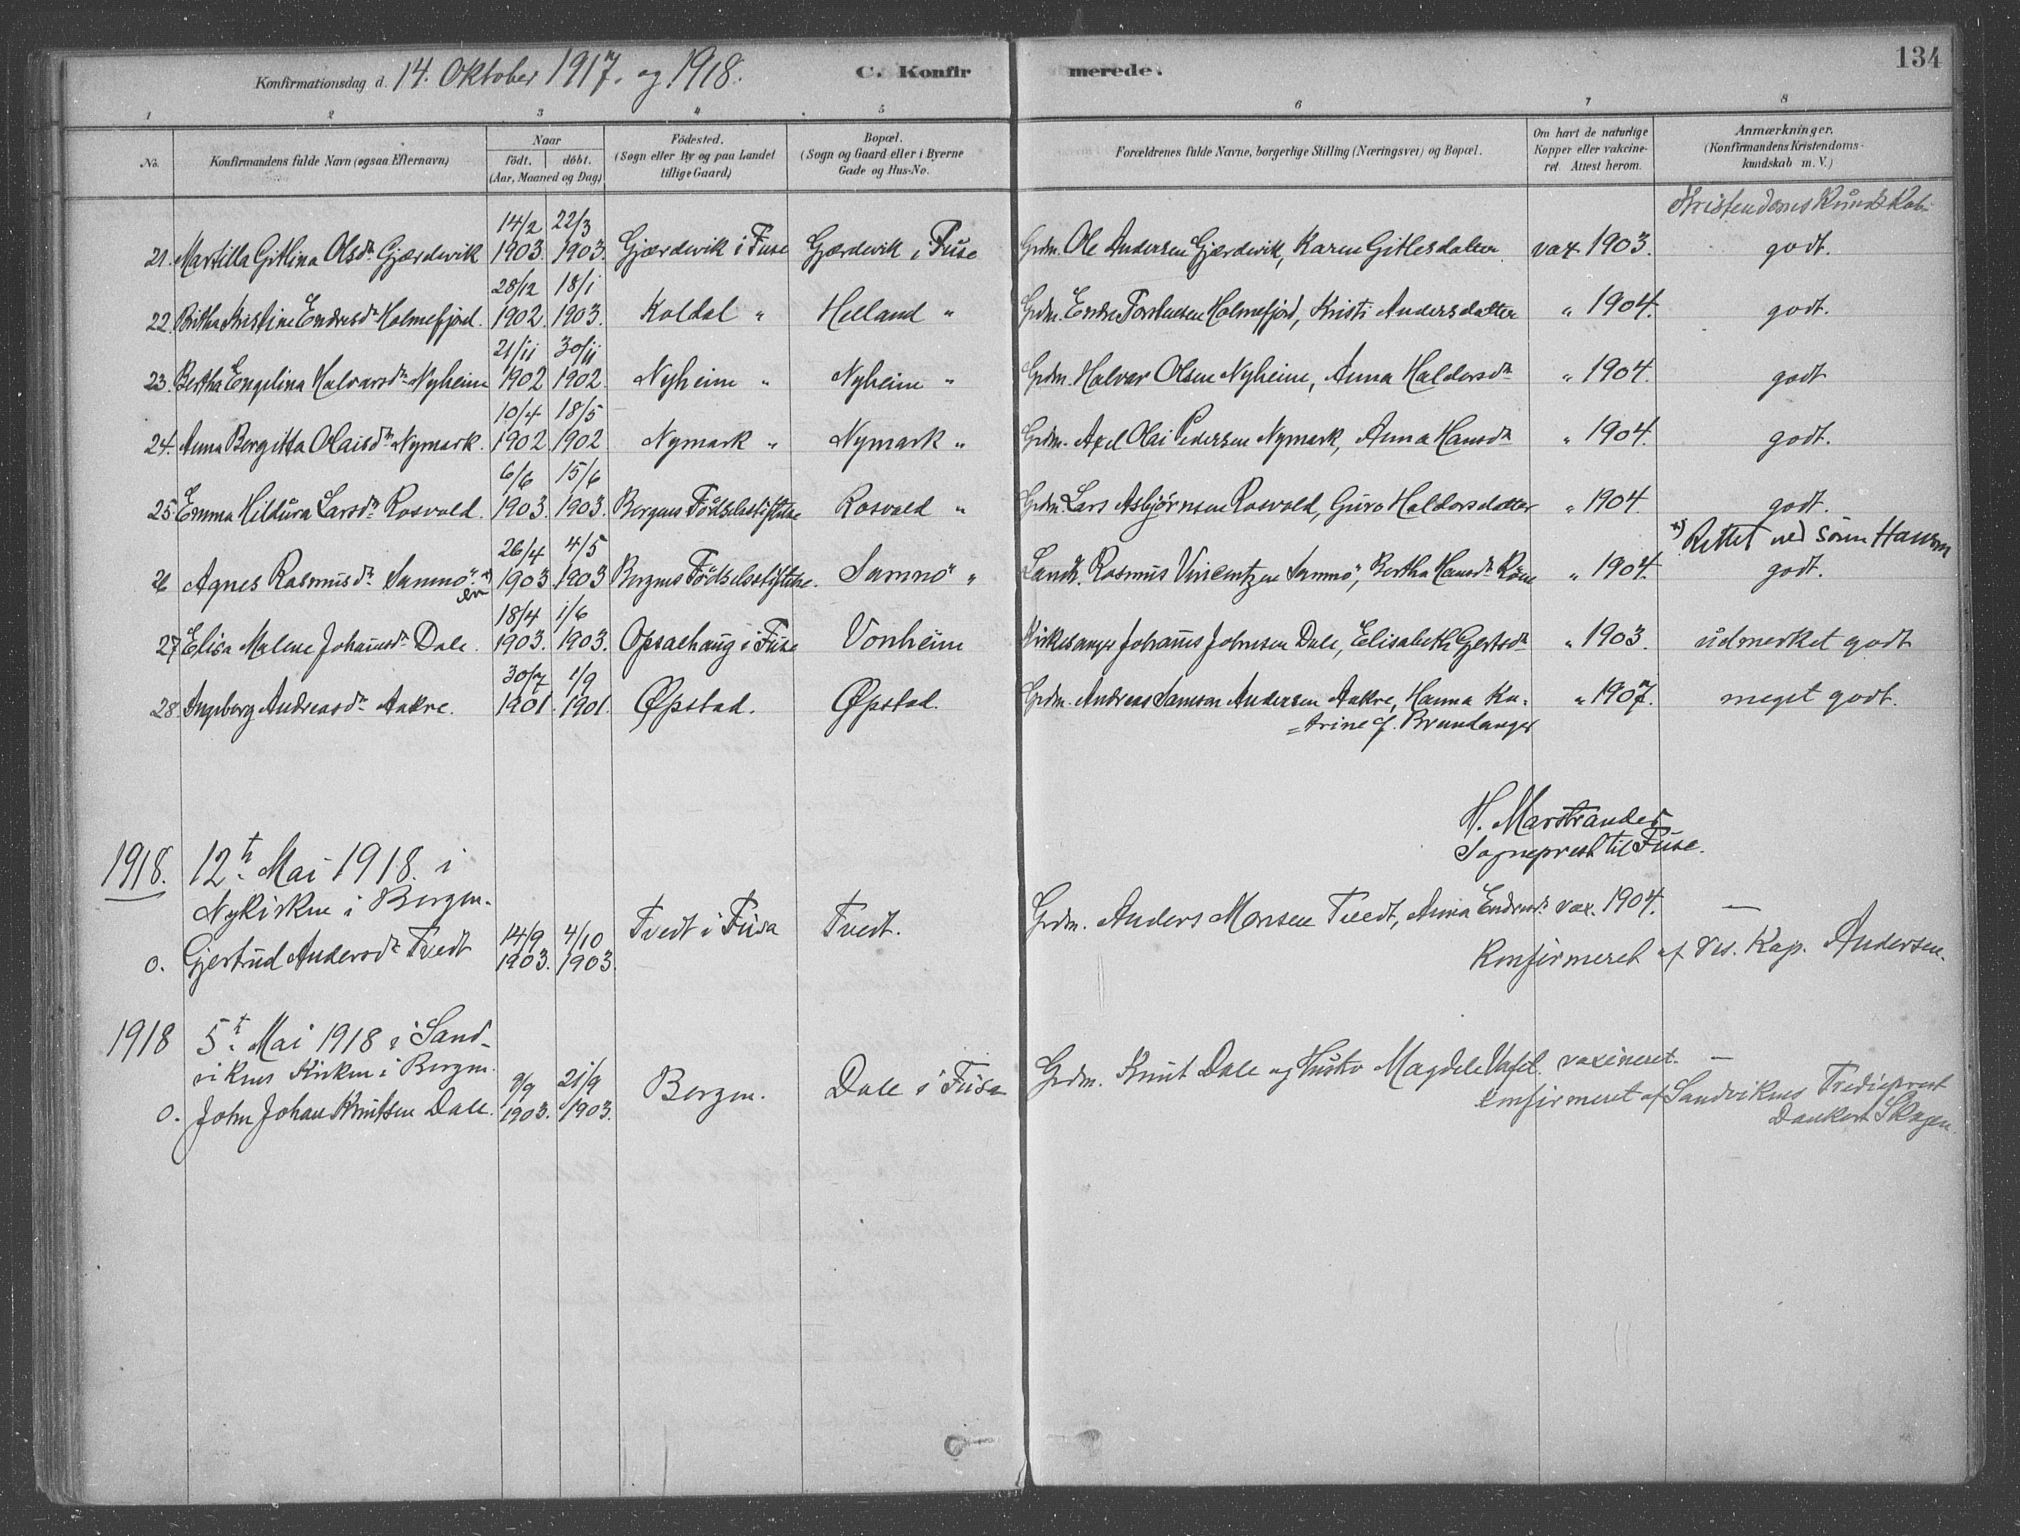 Konfirmationsdag d. 14. Oktober 1917. og 1918. C. Konfirmerede. 134
1 2 3 4 5 6 7 8
No. Konfirmandens fulde Navn (ogsaa Efternavn) Naar født. døbt. (Aar, Maaned og Dag) Fødested. (Sogn eller By og paa Landet tillige Gaard) Bopæl. (Sogn og Gaard eller i Byerne Gade og Hus-No. Forældrenes fulde Navne, borgerlige Stilling (Næringsvei) og Bopæl. Om havt de naturlige Kopper eller vakcineret. Attest herom. Anmærkninger. (Konfirmandens Kristendomskundskab m. V.)
Kristendoms Kundskab
14/2 22/3
21. Martilla Gitlina Olsdr. Gjærdevik 1903. 1903. Gjærdevik i Fuse Gjærdevik i Fuse Grdm. Ole Andersen Gjærdevik, Karen Gitlesdatter vax. 1903. godt.
28/12 18/1
22. Britha Kristine Endresdr. Holmefjord. 1902. 1903. Koldal " Helland " Grdm. Endre Torstensen Holmefjord, Kristi Andersdatter " 1904. godt.
21/11 30/11
23. Bertha Engelina Halvarsdr. Nyheim 1902 1902. Nyheim " Nyheim " Grdm. Halvar Olsen Nyheim, Anna Haldorsdr. " 1904. godt
10/4 18/5
24. Anna Bergitta Olaisdr. Nymark. 1902 1902 Nymark " Nymark " Grdm. Axel Olai Pedersen Nymark, Anna Hansdr. " 1904. godt.
6/6 15/6
25. Emma Hildura Larsdr. Rosvold. 1903. 1903. Bergens Fødselsstiftelse Rosvold " Grdm. Lars Asbjørnsen Rosvold, Guro Haldorsdatter " 1904. godt.
x) Rettet ved Sören Hansen
26/4 4/5
26 Agnes Rasmusdr. Samnö. x) 1903. 1903 Bergens Fødselsstiftelse. Samnö " Landh. Rasmus Vincentzen Samnö, Bertha Hansdr. " 1904. godt.
en
18/4 1/6
27 Elisa Malene Johannesdr. Dale. 1903. 1903. Opsalhaug i Fuse Vonheim Kirkesanger Johannes Johnsen Dale, Elisabeth Gjertsdr. " 1903. udmerket godt
30/7 1/9
28 Ingeborg Andreasdr. Aakre. 1901. 1901. Øpstad. Øpstad. Grdm. Andreas Samson Andersen Aakre, Hanna Ka- " 1907. meget godt.
=trine f. Brundanger
H. Marstrander
Sogneprest til Fuse.
1918. 12te Mai 1918. i
Nykirken i Bergen.
0. Gjertrud Andersdr. Tvedt 14/9 1903. 4/10 1903. Tvedt i Fusa Tvedt. Grdm. Anders Monsen Tvedt, Anna Endresdr. vax. 1904. —
Konfirmeret af res. Kap. Andersen.
1918 5te Mai 1918 i Sand-
vikens Kirken i Bergen.
0. John Johan Knutsen Dale. 9/9 1903. 21/9 1903. Bergen. Dale i Fusa Grdm. Knut Dale og Hustro Magdele vaxineret. —
konfirmeret af Sandvikens Tredieprest
Dankert Skagen.